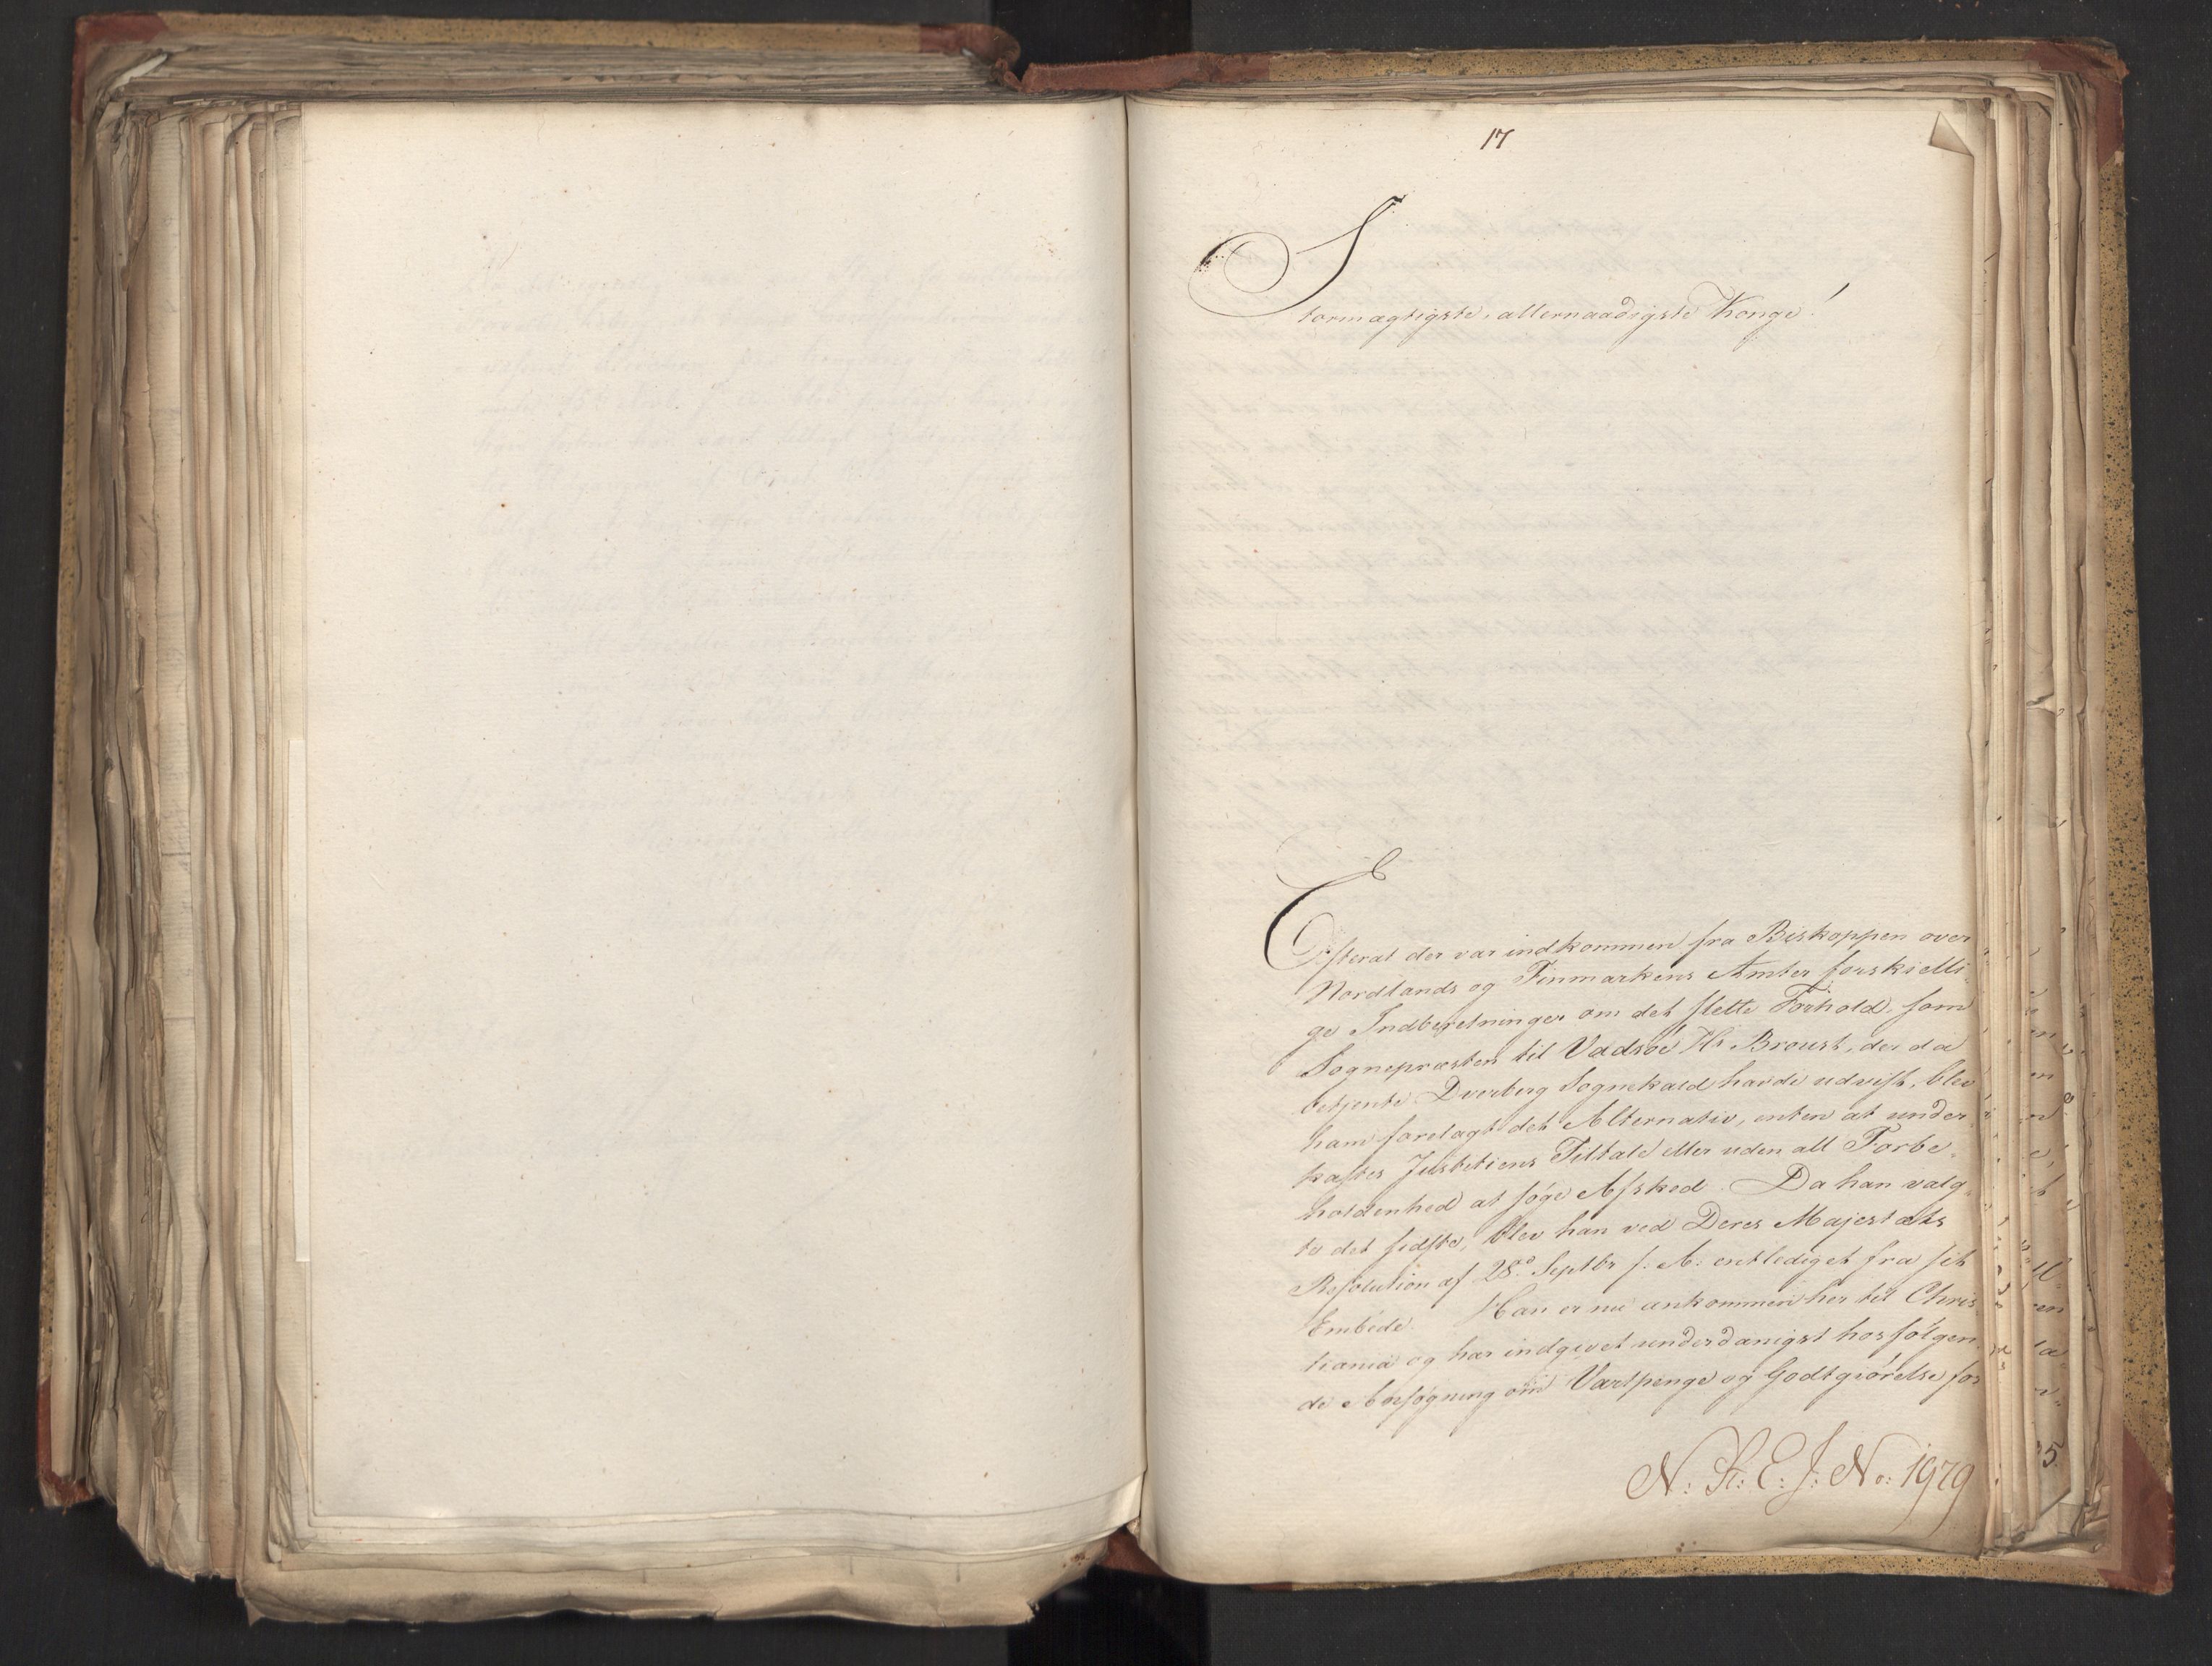 17
Stormægtigste, allernaadigste Konge!
Efterat der var indkommen fra Biskoppen over
Nordlands og Finmarkens Amter forskielli-
ge Indberetninger om det slette Forhold, som
Sognepræsten til Vadsöe Hr Broust, der da
betjente Dverberg Sognekald havde udvist, blev
ham forelagt det Alternativ, enten at under-
kastes Justitiens Tiltale eller uden all Forbe-
holdenhed at søge Afsked. Da han valg-
te det sidste, blev han ved Deres Majestæts
Resolution af 28de Septbr f: A: entlediget fra sit
Embede. Han er nu ankommen her til Chris-
tiania og har indgivet underdanigst hosfölgen-
de Ansøgning om Vartpenge og Godtgiörelse for
N: R: E: J: No: 1979